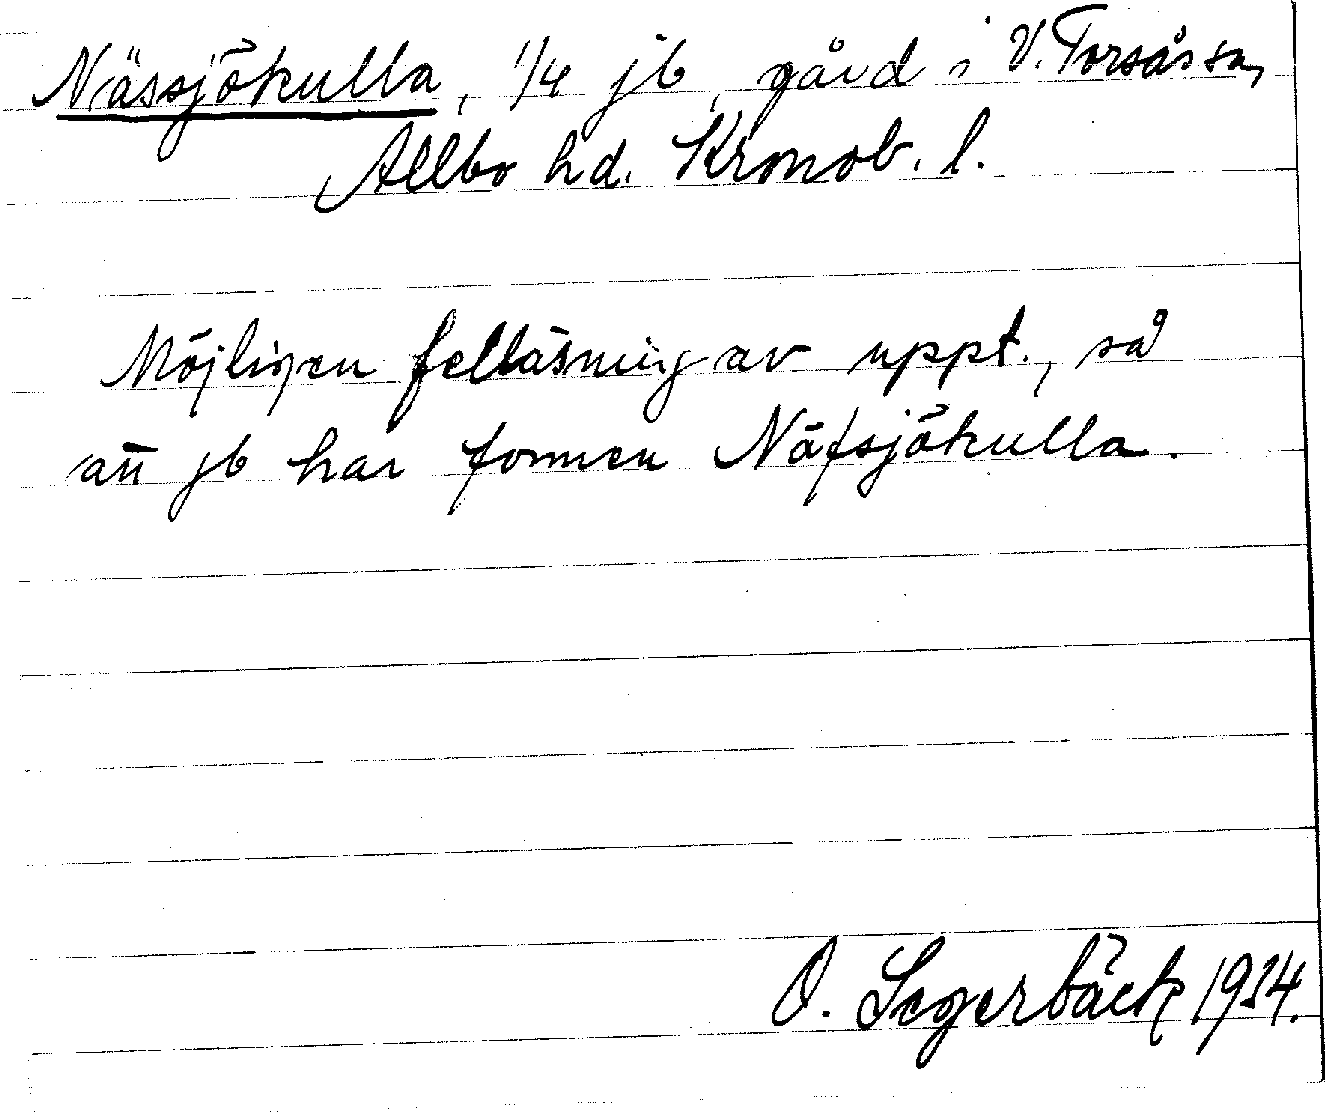 Nässjökulla, 1/4 jb, gård i V. Torsås sn,
Allbo hd. Kronob. l.
Möjligen felläsning av uppt., så
att jb har formen Näfsjökulla.
O. Segerbäck 1934.